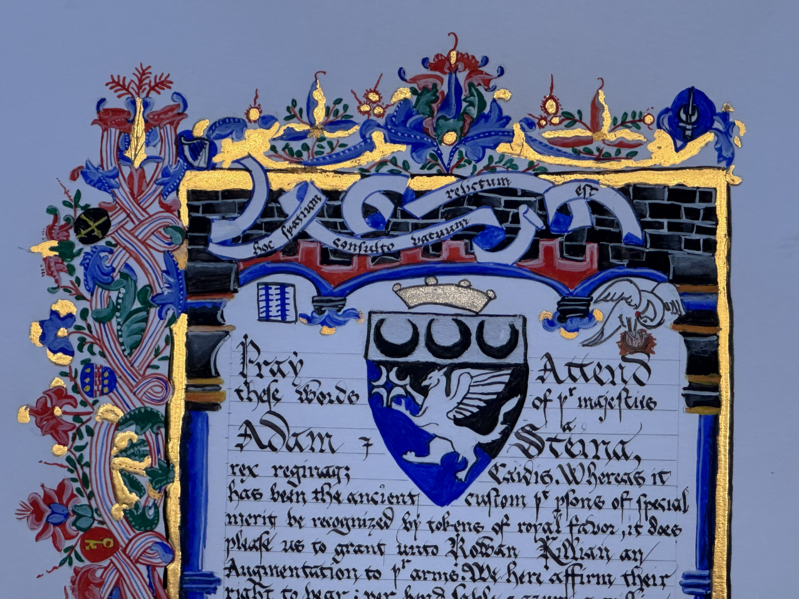 hoc spatium
consulto vacuum
relictum
est
Pray Attend
these words of yr majesties
Adam & Steina,
rex reginaq; Caidis. Whereas it
has been the ancient custom yt psons of special
merit be recognized by tokens of royal favor, it does
please us to grant unto Rowan Killian an
Augmentation to yr arms: We here affirm their
right to bear: per bend sable